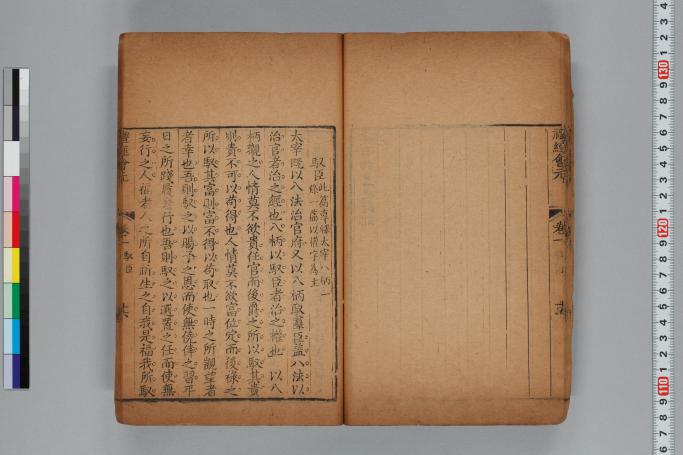 禮經會元
卷一
馭臣此篇專釋太宰八柄一
條一篇以權字為主
太宰既以八法治官府又以八柄馭羣臣蓋八法以
治官者治之經也八柄以馭臣者治之權也 以八
柄觀之人情莫不欲貴任官而後爵之所以馭其貴
則貴不可以苟得也人情莫不欲富位定而後祿之
所以馭其富則富不得以苟取也一時之所觀望者
者幸也吾則馭之以賜予之恩而使無僥倖之習平
日之所踐履者行也吾則馭之以選置之任而使無
妄行之人福者人之所自祈生之自我是福我所馭
禮經會元
卷一 馭臣
130
120
110